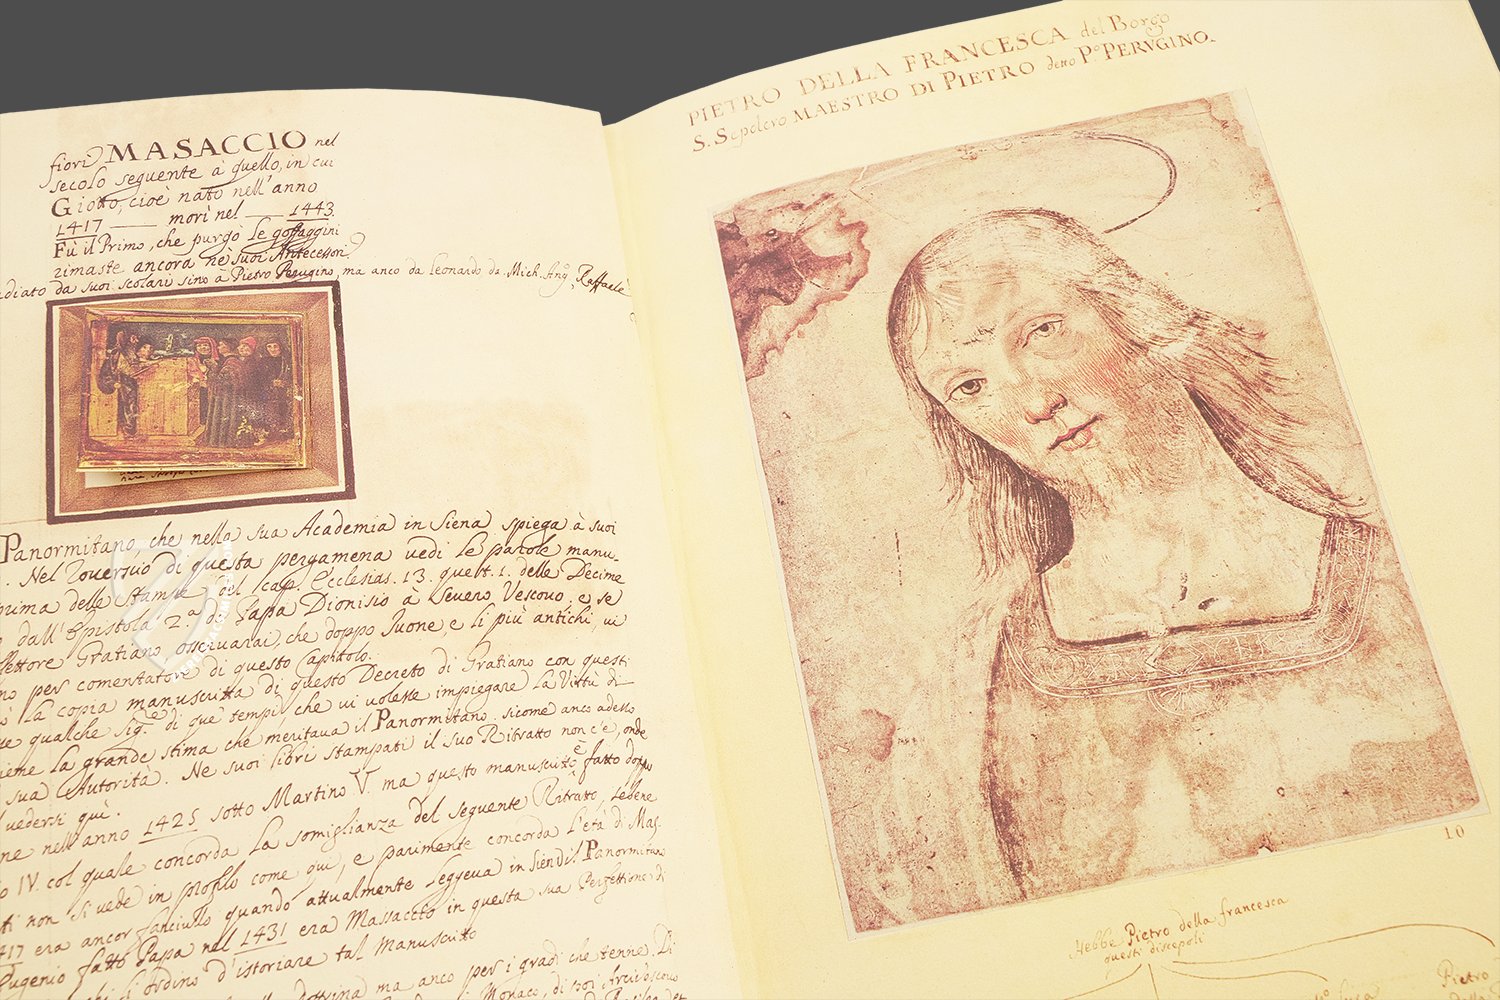 fiorì MASACCIO nel
secolo seguente à quello, in cui
Giotto, cioè nato nell'anno
1417 — morì nel — 1443.
Fù il Primo, che purgò le goffaggini
rimaste ancora ne suoi Antecessori
diato da suoi scolari sino à Pietro Perugino, ma anco da Leonardo da Mich. Ang.º, Raffaele
Panormitano, che nella sua Academia in Siena spiega à suoi
. Nel Roversio di questa pergamena vedi le parole manu-
prima delle stampe del cap. Ecclesias. 13. quest. 1. delle Decime
dall'Epistola 2.ª di Papa Dionisio à Severo Vescovo. e se
lettore Gratiano osservarai, che doppo Juone, e li più antichi, vi
no per comentatore di questo Capitolo.
la copia manuscritta di questo Decreto di Gratiano con questi
qualche sig.re di que' tempi che vi volesse impiegare la Virtù di
la grande stima che meritava il Panormitano. sicome anco adesso
sua Autorità. Ne suoi libri stampati il suo Ritratto non c'è, onde
vedersi quì.
ne nell'anno 1425 sotto Martino V. ma questo manuscritto è fatto doppo
IV. col quale concorda la somiglianza del seguente Ritratto, sebene
non si vede in profilo come quì, e parimente concorda l'età di Mas.
417 era ancor fanciullo quando attualmente leggeva in Siena il Panormitano
Eugenio fatto Papa nel 1431 era Massaccio in questa sua Perfettione di
ordinò d'istoriare tal manuscritto
dottrina ma anco per i gradi che tenne. Di
di Monaco, di poi Arcivescovo
PIETRO DELLA FRANCESCA del Borgo
S. Sepolcro MAESTRO DI PIETRO detto P.º PERVGINO.
10
Hebbe Pietro della francesca
questi discepoli
Pietro